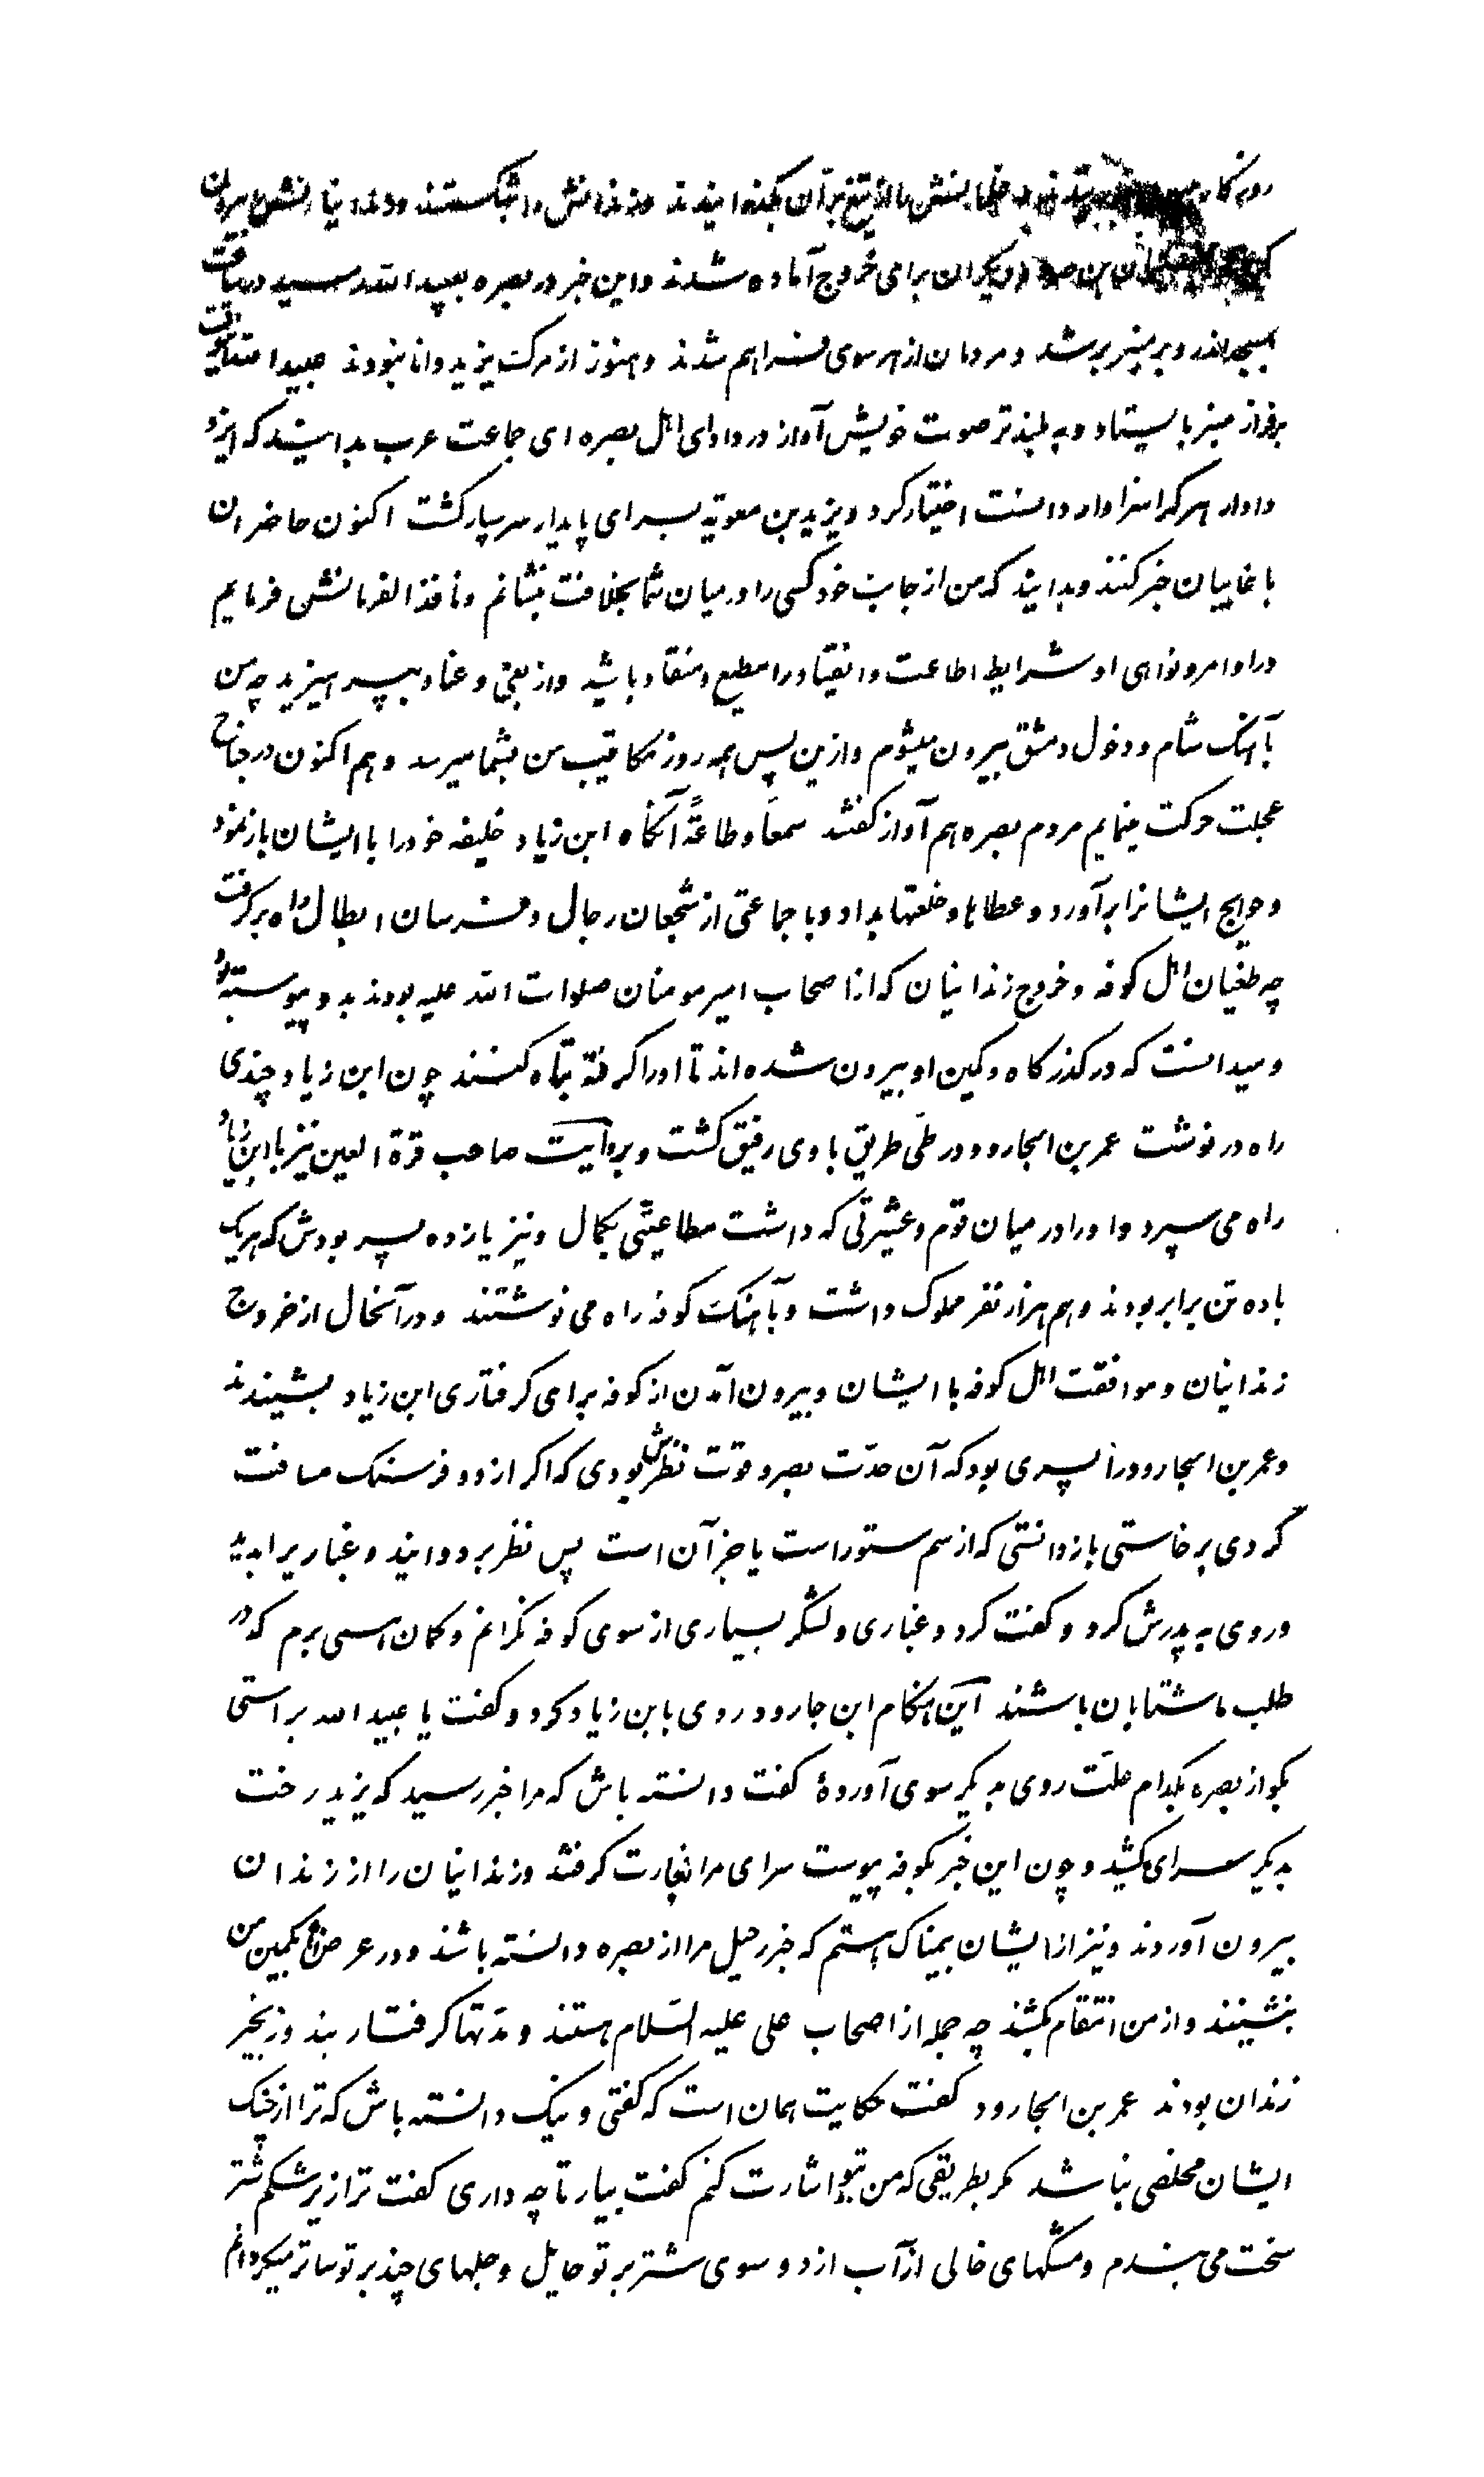 روزگار و غلمانش را از تیغ بران بگذرانیدند و زندانش را بشکستند و زندانیانش بیرون
بن صرد و دیگران برای خروج آماده شدند و این خبر در بصره بعبید الله رسید
بمسجد اندر و بر منبر بر شد و مردمان از هر سوی فراهم شدند و هنوز از مرگ یزید دانا نبودند عبید الله
برفراز منبر بایستاد و به بلندتر صوت خویش آواز در داد ای اهل بصره ای جماعت عرب بدانید که ایزد
دادار هر که را سزاوار دانست اختیار کرد و یزید بن معویه بسرای پایدار رهسپار گشت اکنون حاضران
با غایبان خبر کنند و بدانید که من از جانب خود کسی را در میان شما بخلافت بنشانم و نافذ الفرمانش فرمایم
در اوامر و نواهی او شرایط اطاعت و انقیاد را مطیع و منقاد باشید و از بغی و عناد بپرهیزید چه من
بآهنگ شام و دخول دمشق بیرون میشوم و ازین پس همه روز مکاتیب من بشما میرسد و هم اکنون در جناح
عجلت حرکت مینمایم مردم بصره هم آواز گفتند سمعاً و طاعةً آنگاه ابن زیاد خلیفه خود را با ایشان باز نمود
و حوایج ایشانرا بر آورد و عطاها و خلعتها بداد و با جماعتی از شجعان رجال و فرسان ابطال راه بر گرفت
چه طغیان اهل کوفه و خروج زندانیان که از اصحاب امیر مومنان صلوات الله علیه بودند بدو پیوسته بود
و میدانست که در گذرگاه و کمین او بیرون شده اند تا او را گرفته تباه کنند چون ابن زیاد چندی
راه در نوشت عمر بن الجارود در طی طریق با وی رفیق گشت و بروایت صاحب قرة العین نیز با ابن زیاد
راه می سپرد و او را در میان قوم و عشیرتی که داشت مطاعیتی بکمال و نیز یازده پسر بودش که هریک
باده تن برابر بودند و هم هزار نفر مملوک داشت و بآهنگ کوفه راه می نوشتند و در آنحال از خروج
زندانیان و موافقت اهل کوفه با ایشان و بیرون آمدن از کوفه برای گرفتاری ابن زیاد بشنیدند
و عمر بن الجارود را پسری بود که آن حدّت بصر و قوّت نظرش بودی که اگر از دو فرسنگ مسافت
گردی بر خاستی باز دانستی که از سم ستور است یا جز آن است پس نظر بر دوانید و غبار یرا بدید
و روی به پدرش کرد و گفت گرد و غباری و لشگر بسیاری از سوی کوفه نگرانم و گمان همی برم که در
طلب ما شتابان باشند این هنگام ابن جارود روی بابن زیاد کرد و گفت یا عبید الله براستی
بگو از بصره بکدام علّت روی بدیگر سوی آوردهٔ گفت دانسته باش که مرا خبر رسید که یزید رخت
بدیگر سرای کشید و چون این خبر بکوفه پیوست سرای مرا بغارت گرفتند و زندانیان را از زندان
بیرون آوردند و نیز از ایشان بیمناک هستم که خبر رحیل مرا از بصره دانسته باشند و در عرض راه بکمین من
بنشینند و از من انتقام بکشند چه جمله از اصحاب علی علیه السّلام هستند و مدتها گرفتار بند و زنجیر
زندان بودند عمر بن الجارود گفت حکایت همان است که گفتی و نیک دانسته باش که ترا از چنگ
ایشان مخلصی نباشد مگر بطریقی که من بتو اشارت کنم گفت بیار تا چه داری گفت ترا از زیر شکم شتر
سخت می بندم و مشگهای خالی از آب از دو سوی شتر بر تو حایل و جلهای چند بر تو ساتر میگردانم